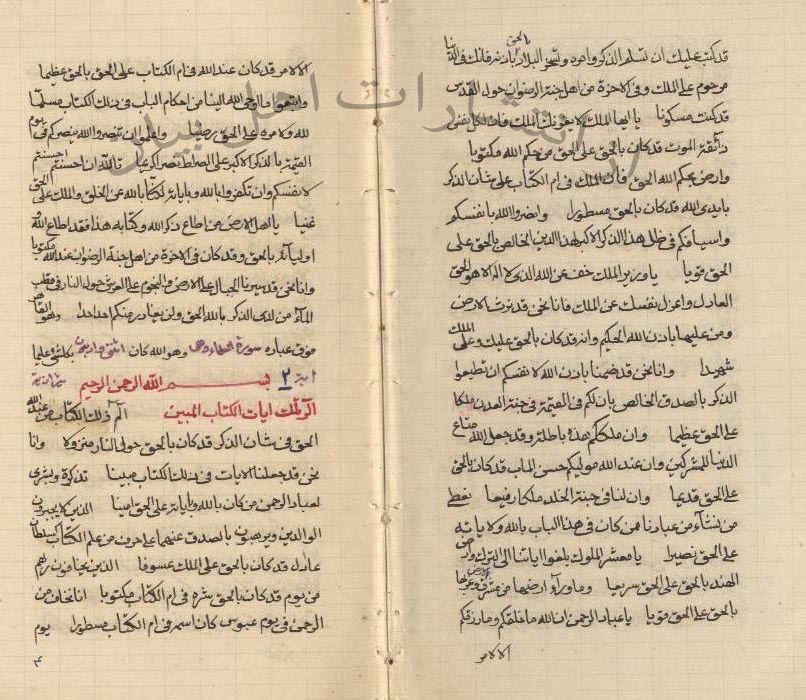 قد كتب عليك ان تسلم الذكر وامره وتسخر البلاد بالحق باذنه فانك فى الدنيا
مرحوم على الملك وفى الاخرة من اهل جنة الرضوان حول القدس
قد كنت مسكونا يا ايها الملك لا يغرنك الملك فان كل نفس
ذائقة الموت قد كان بالحق على الحق من حكم الله مكتوبا
وارض بحكم الله الحق فان الملك فى ام الكتاب على شان الذكر
بايدى الله قد كان بالحق مسطورا وانصروا الله بانفسكم
واسيافكم فى ظل هذا الذكر الاكبر لهذا الدين الخالص بالحق على
الحق قويا يا وزير الملك خف عن الله الذى لا اله الا هو الحق
العادل واعزل نفسك عن الملك فانا نحن قد نرث الارض
ومن عليها باذن الله الحكيم وانه قد كان بالحق عليك وعلى الملك
شهيدا وانا نحن قد ضمنا باذن الله لانفسكم ان تطيعوا
الذكر بالصدق الخالص بان لكم فى القيمة فى جنة العدن ملكا
على الحق عظيما وان ملككم هذه باطلة وقد جعل الله متاع
الدنيا للمشركين وان عند الله موليكم حسن الماب قد كان بالحق
على الحق قديما وان لنا فى جنة الخلد ملكا رفيعا نعطى
من نشاء من عبادنا من كان فى هذا الباب بالله وباياته
على الحق نصيرا يا معشر الملوك بلغوا اياتنا الى الترك وارض
الهند بالحق على الحق سريعا وما وراء ارضهما من مشرق الارض وغربها
بالحق على الحق قويا يا عباد الرحمن ان الله ما خلقكم وما رزقكم
الا لامر
الا لامر قد كان عند الله فى ام الكتاب على الحق بالحق عظيما
واتبعوا ما اوحى الله الينا من احكام الباب فى ذلك الكتاب مسلما
لله ولامره على الحق رضيا واعلموا ان تنصروا الله ينصركم فى يوم
القيمة بالذكر الاكبر على الصراط نصرا كريما تالله ان احسنتم احسنتم
لانفسكم وان تكفروا بالله وباياته لكنا بالله عن الخلق والملك على الحق
غنيا يا اهل الارض من اطاع ذكر الله وكتابه هذا فقد اطاع الله و
اوليائه بالحق وقد كان فى الاخرة من اهل جنة الرضوان عند الله مكتوبا
وانا نحن قد سيرنا الجبال على الارض والنجوم على العرش حول النار فى قطب
الماء من لدى الذكر بالله الحق ولن يغادر منكم احدا وهو القاهر
فوق عباده وهو الله كان بكل شئ عليما
٢ بسم الله الرحمن الرحيم
الر تلك ايات الكتاب المبين الم ذلك الكتاب من عند الله
الحق فى شان الذكر قد كان بالحق حول النار منزولا وانا
نحن قد جعلنا الايات فى ذلك الكتاب مبينا تذكرة وبشرى
لعباد الرحمن من كان بالله وباياته على الحق امينا الذين
الوالدين ويرهبون بالصدق عنهما على حرف من علم الكتاب سلطان
عادل قد كان بالحق على الملك عسوفا الذين يخافون ربهم
من يوم قد كان بالحق شره فى ام الكتاب مكتوبا انا نخاف من
الرحمن فى يوم عبوس كان اسمه فى ام الكتاب مسطورا يوم